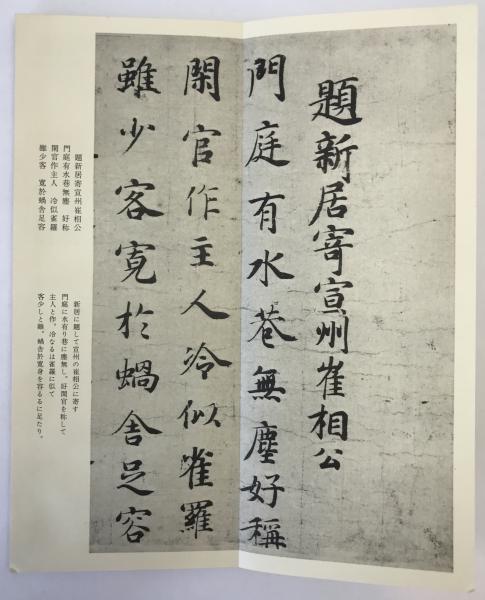 題新居寄宣州崔相公
門庭有水巷無塵好稱
閑官作主人冷似雀羅
雖少客寛於蝸舎足容
題新居寄宣州崔相公
門庭有水巷無塵 好称
閑官作主人 冷似雀羅
雖少客 寛於蝸舎足容
新居に題して宣州の崔相公に寄す
門庭に水有り巷に塵無し。好閑官を称して
主人と作。冷なるは雀羅に似て
客少しと雖。蝸舎於寛身を容るるに足たり。